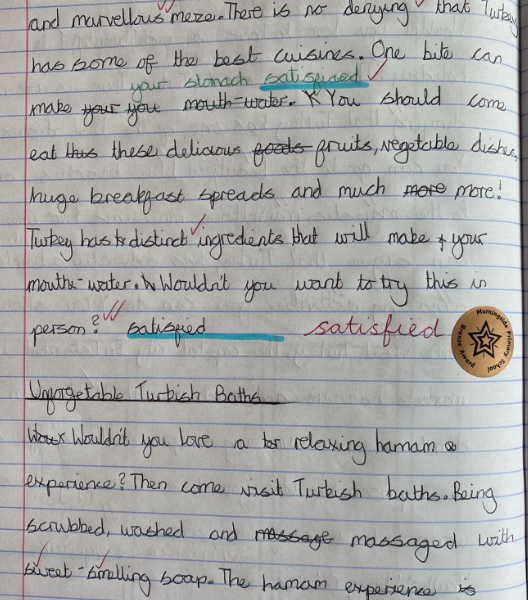 and marvellous meze. There is no denying that Turkey
has some of the best cuisines. One bite can
your stomach satisficed
make your you mouth-water. You should come
eat this these delicious foods fruits, vegetable dishes,
huge breakfast spreads and much more more!
Turkey has distinct ingredients that will make your
mouth-water. Wouldn't you want to try this in
person? satisfied satisfied
Morningside Primary School
Unforgetable Turkish Baths
Wouldn't you love a relaxing hamam
experience? Then come visit Turkish baths. Being
scrubbed, washed and massage massaged with
sweet-smelling soap. The hamam experience is